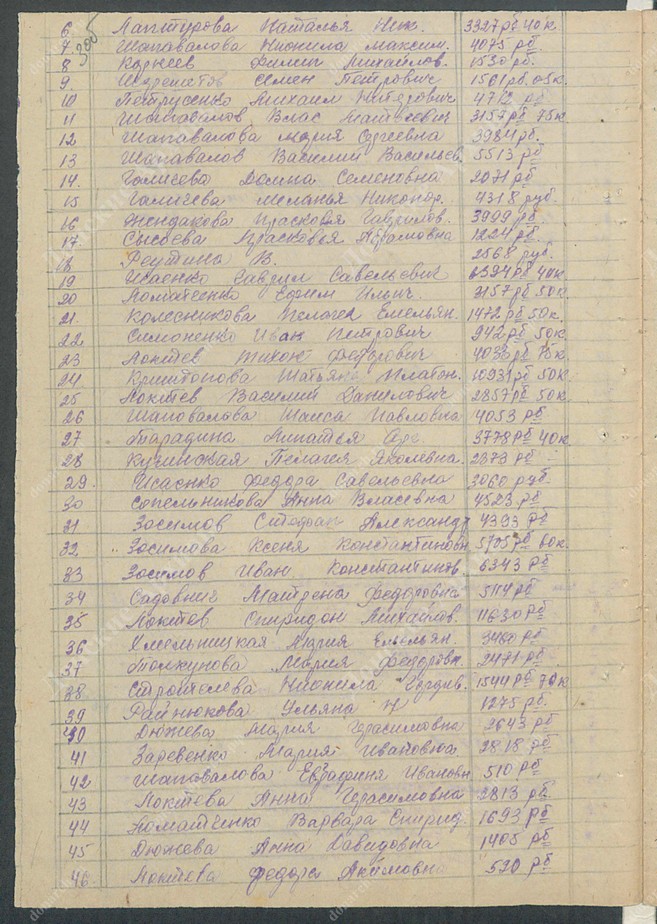 6 Лаптурова Наталья Ник. 3327 рб 40 к.
7 Шаповалова Неонила Максим. 4075 рб
8 Корнеев Филип Михайлов. 1530 рб.
9. Семен Петрович 1501 рб. 05 к.
10 Петрусенко Михаил 4712 рб
11 Шаповалов Влас Матвеевич 3157 рб 75 к
12 Шаповалова Мария Сергеевна 3984 рб.
13 Шаповалов Василий Васильев. 5513 рб
14. Галисева Домна Семеновна 2071 рб
15 Галичева Меланья Никонор. 4318 руб.
16 Жендакова Прасковья Гаврилов. 3999 рб
17. Сысоева Прасковья Абрамовна 1224 рб.
18 Реутина В. 2568 руб.
19 Исаенко Гаврил Савельевич 6394 рб 40 к
20 Ефим Ильич. 3157 рб 50 к.
21 Колесникова Пелагея Емельян. 1472 рб 50 к.
22 Симоненко Иван Петрович 942 рб 50 к.
23 Локтев Тихон Федорович 4038 рб 75 к
24 Криштопова Татьяна Платон. 10931 рб 50 к.
25 Локтев Василий Данилович 2857 рб 50 к
26 Шаповалова Таиса Павловна 4053 рб
27 Тарадина 3778 рб 40 к
28 Кучинская Пелагея Яколевна. 2873 рб
29. Исаенко Федора Савельевна 3060 руб.
30 Сопельникова Анна Власевна 4523 рб
31 Зосимов Стефан Александр 4393 рб
32. Зосимова Ксеня Константиновн 5705 рб 60 к.
33 Зосимов Иван Константинов 6343 рб
34 Садовнич Матрена Федоровна 5114 рб
35 Локтев Спиридон Михайлов. 11630 рб
36 Хмельницкая Мария Емельян. 3460 рб
37 Толкунова Мария Федоровн. 2471 рб
38 Строителева Неонила 1544 рб 70 к
39 Райнюкова Ульяна Н 1275 рб.
40 Дюжева Мария Герасимовна 2643 рб
41 Заревенко Мария Ивановна 2818 рб
42 Шаповалова Евграфиня Ивановн 510 рб
43 Локтева Анна Герасимовна 2813 рб.
44 Варвара Спирид. 1693 рб
45 Дюжева Анна Давидовна 1405 рб
46. Локтева Федора Акимовна 520 рб